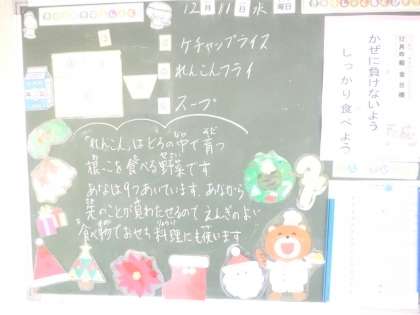 12月11日水曜日
ケチャップライス
れんこんフライ
スープ
"れんこん"は どろの中で育つ
根っこを食べる野菜です
あなは9つあいています。あなから
先のことが見わたせるので えんぎのよい
食べ物でおせち料理にも使います
かぜに負けないよう
しっかり食べよう